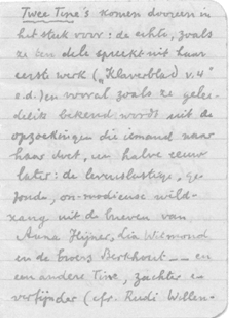 Twee Tine's komen dooreen in
het stuk voor: de echte, zoals
ze ten dele spreekt uit haar
eerste werk ("Klaverblad v. 4"
e.d.) en vooral zoals ze gelei-
delijk bekend wordt uit de
opzoekingen die iemand naar
haar doet, een halve eeuw
later: de levenslustige, ge-
zonde, on-modieuse wild-
zang uit de brieven van
Anna Heijner, Lia Wiemond
en de broers Berkhout — en
een andere Tine, zachter en
verfijnder (cfr. Rudi Willen-